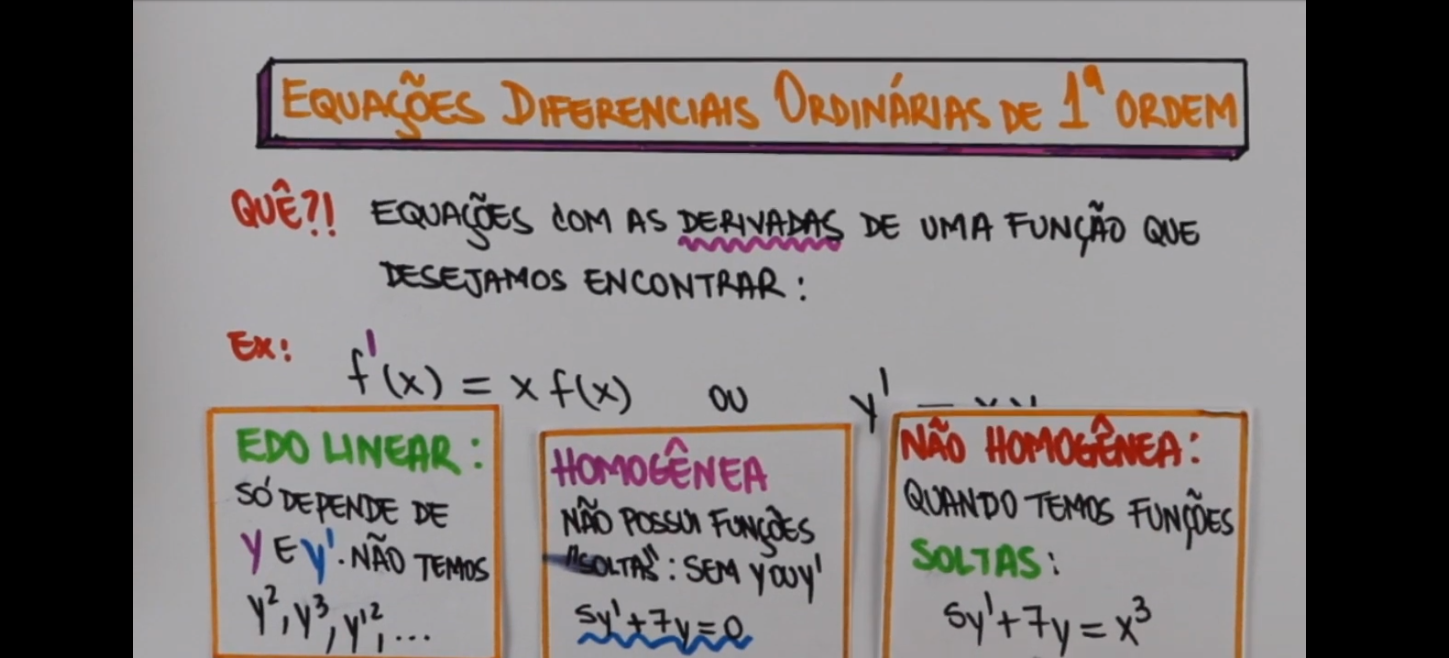 EQUAÇÕES DIFERENCIAIS ORDINÁRIAS DE 1ª ORDEM
QUÊ?! EQUAÇÕES COM AS DERIVADAS DE UMA FUNÇÃO QUE
DESEJAMOS ENCONTRAR:
EX: f'(x) = x f(x) OU y' =
EDO LINEAR:
SÓ DEPENDE DE
Y E Y'. NÃO TEMOS
y², y³, y'², ...
HOMOGÊNEA
NÃO POSSUI FUNÇÕES
"SOLTAS": SEM Y OU Y'
5y' + 7y = 0
NÃO HOMOGÊNEA:
QUANDO TEMOS FUNÇÕES
SOLTAS:
5y' + 7y = x³